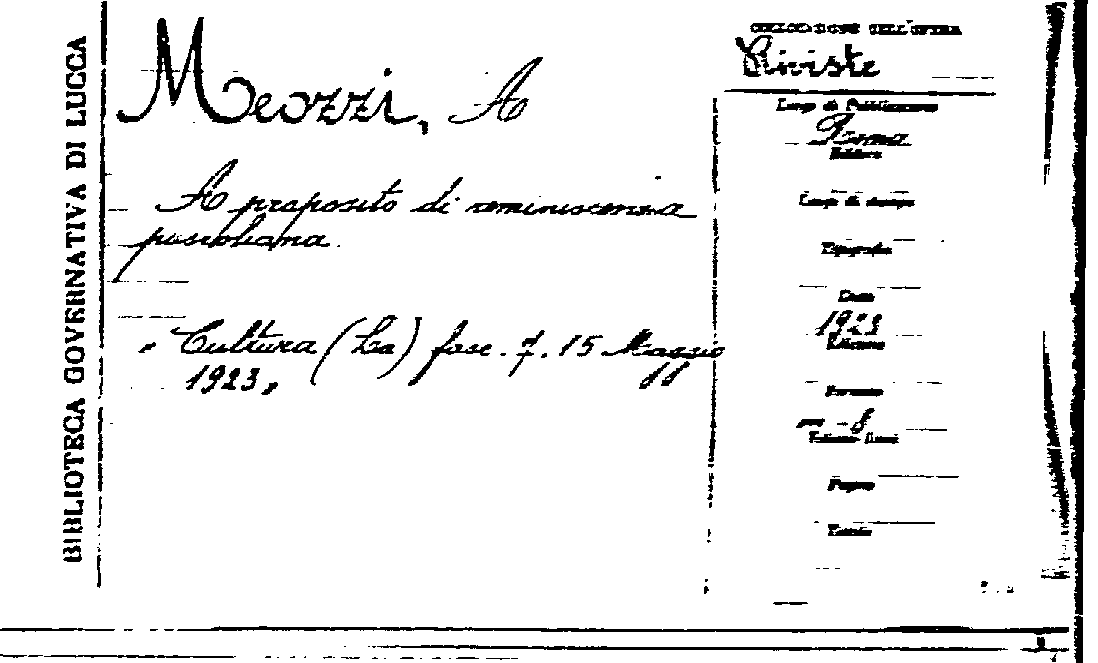 BIBLIOTECA GOVERNATIVA DI LUCCA
Meozzi, A
A proposito di reminiscenza
pascoliana.
" Cultura (La) fasc. 7. 15 Maggio
1923 "
COLLOCAZIONE DELL'OPERA
Riviste
Luogo di Pubblicazione
Roma
Editore
Luogo di stampa
Tipografia
Data
1923
Edizione
Formato
- 8
Pagine